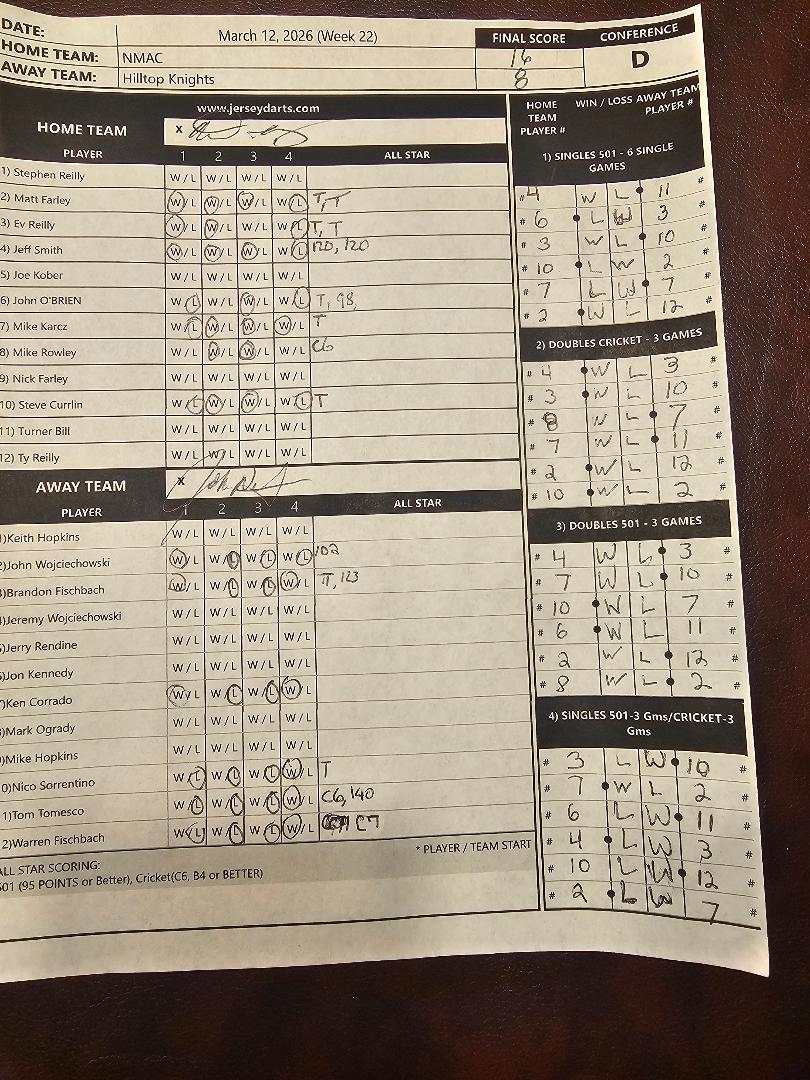 DATE: March 12, 2026 (Week 22) FINAL SCORE CONFERENCE
HOME TEAM: NMAC 16 D
AWAY TEAM: Hilltop Knights 8
www.jerseydarts.com
HOME TEAM x
PLAYER 1 2 3 4 ALL STAR
1) Stephen Reilly W / L W / L W / L W / L
2) Matt Farley W / L W / L W / L W / L T, T
3) Ev Reilly W / L W / L W / L W / L T, T
4) Jeff Smith W / L W / L W / L W / L 120, 120
5) Joe Kober W / L W / L W / L W / L
6) John O'BRIEN W / L W / L W / L W / L T, 98,
7) Mike Karcz W / L W / L W / L W / L T
8) Mike Rowley W / L W / L W / L W / L C6
9) Nick Farley W / L W / L W / L W / L
10) Steve Currlin W / L W / L W / L W / L T
11) Turner Bill W / L W / L W / L W / L
12) Ty Reilly W / L W / L W / L W / L
AWAY TEAM x
PLAYER 1 2 3 4 ALL STAR
)Keith Hopkins W / L W / L W / L W / L
2)John Wojciechowski W / L W / L W / L W / L 102
)Brandon Fischbach W / L W / L W / L W / L T, 123
)Jeremy Wojciechowski W / L W / L W / L W / L
)Jerry Rendine W / L W / L W / L W / L
)Jon Kennedy W / L W / L W / L W / L
)Ken Corrado W / L W / L W / L W / L
)Mark Ogrady W / L W / L W / L W / L
)Mike Hopkins W / L W / L W / L W / L
0)Nico Sorrentino W / L W / L W / L W / L T
1)Tom Tomesco W / L W / L W / L W / L C6, 140
2)Warren Fischbach W / L W / L W / L W / L C7
* PLAYER / TEAM START
ALL STAR SCORING:
501 (95 POINTS or Better), Cricket(C6, B4 or BETTER)
HOME TEAM PLAYER # WIN / LOSS AWAY TEAM PLAYER #
1) SINGLES 501 - 6 SINGLE GAMES
# 4 W L 11 #
# 6 L W 3 #
# 3 W L 10 #
# 10 L W 2 #
# 7 L W 7 #
# 2 W L 12 #
2) DOUBLES CRICKET - 3 GAMES
# 4 W L 3 #
# 3 W L 10 #
# 8 W L 7 #
# 7 W L 11 #
# 2 W L 12 #
# 10 W L 2 #
3) DOUBLES 501 - 3 GAMES
# 4 W L 3 #
# 7 W L 10 #
# 10 W L 7 #
# 6 W L 11 #
# 2 W L 12 #
# 8 W L 2 #
4) SINGLES 501-3 Gms/CRICKET-3 Gms
# 3 L W 10 #
# 7 W L 2 #
# 6 L W 11 #
# 4 L W 3 #
# 10 L W 12 #
# 2 L W 7 #